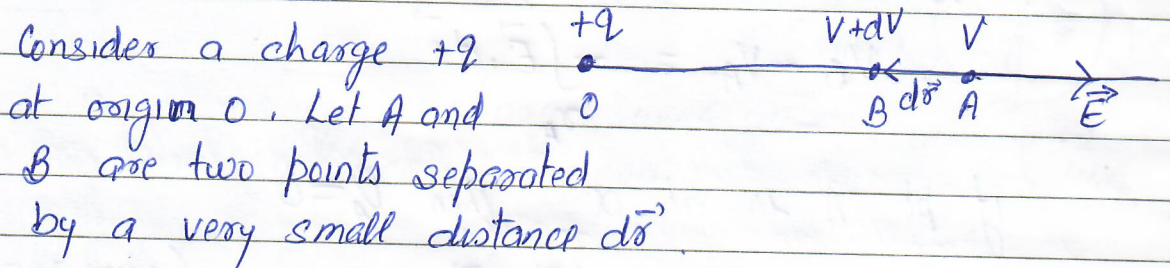 Consider a charge +q
at origin O. Let A and
B are two points separated
by a very small distance dr⃗.
+q
V+dV
V
O
B
dr⃗
A
E⃗